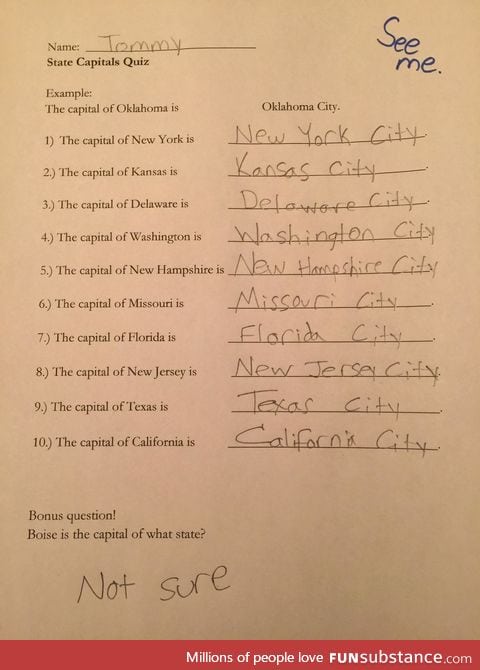 Name: Tommy
See
me.
State Capitals Quiz
Example:
The capital of Oklahoma is Oklahoma City.
1) The capital of New York is New York City.
2.) The capital of Kansas is Kansas City.
3.) The capital of Delaware is Delaware City.
4.) The capital of Washington is Washington City.
5.) The capital of New Hampshire is New Hampshire City.
6.) The capital of Missouri is Missouri City.
7.) The capital of Florida is Florida City.
8.) The capital of New Jersey is New Jersey City.
9.) The capital of Texas is Texas City.
10.) The capital of California is California City.
Bonus question!
Boise is the capital of what state?
Not sure
Millions of people love FUNsubstance.com